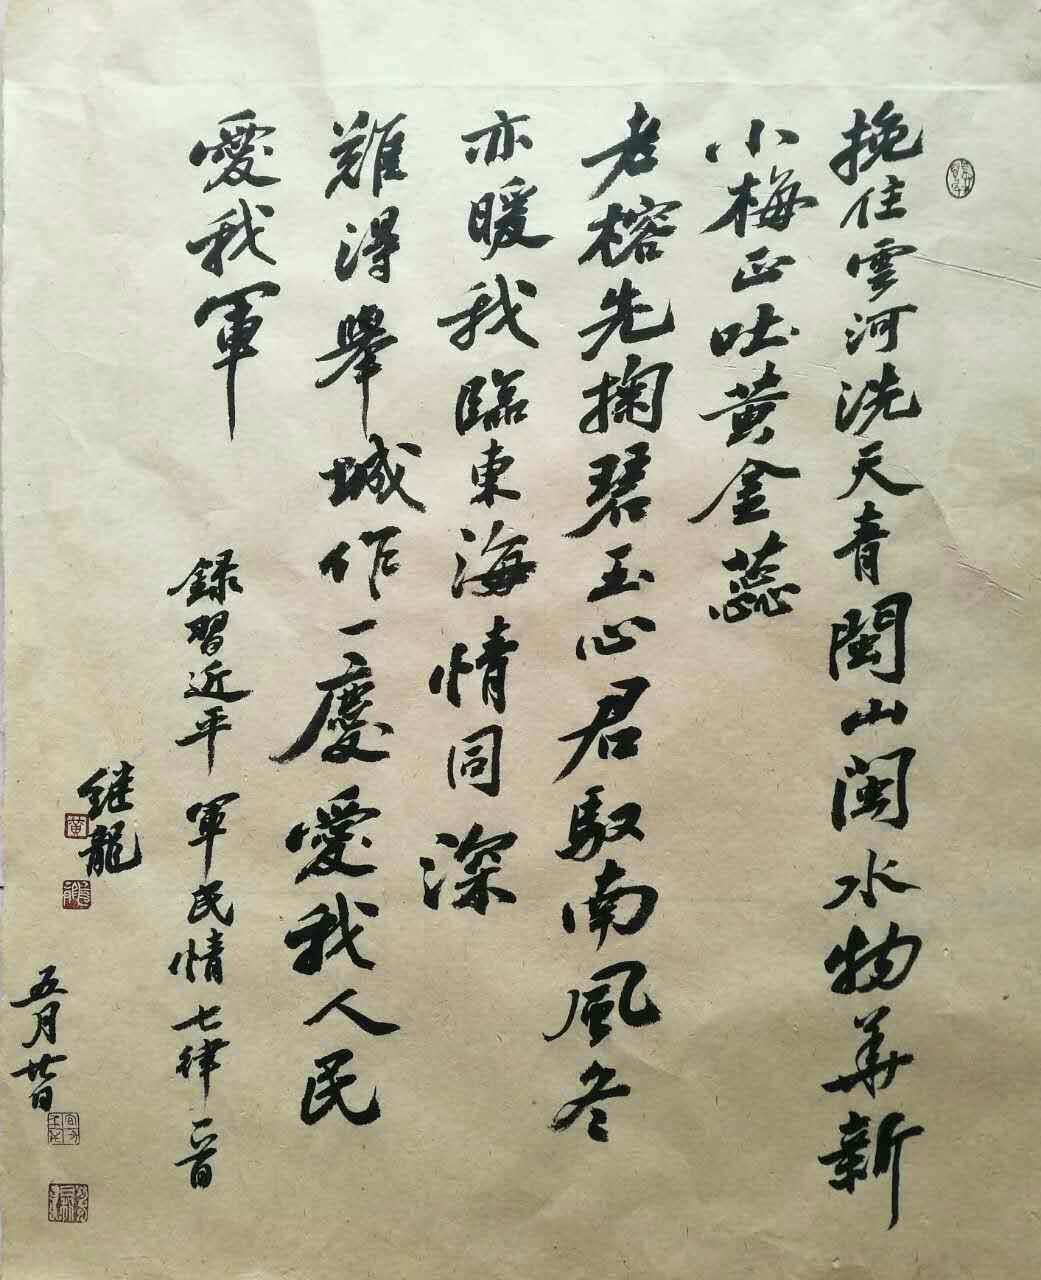 挽住雲河洗天青閩山閩水物華新
小梅正吐黄金蕊
老榕先掬碧玉心君馭南風冬
亦暖我臨東海情同深
難得舉城作一慶愛我人民
愛我軍
録習近平 軍民情七律一首
继龍
五月廿日